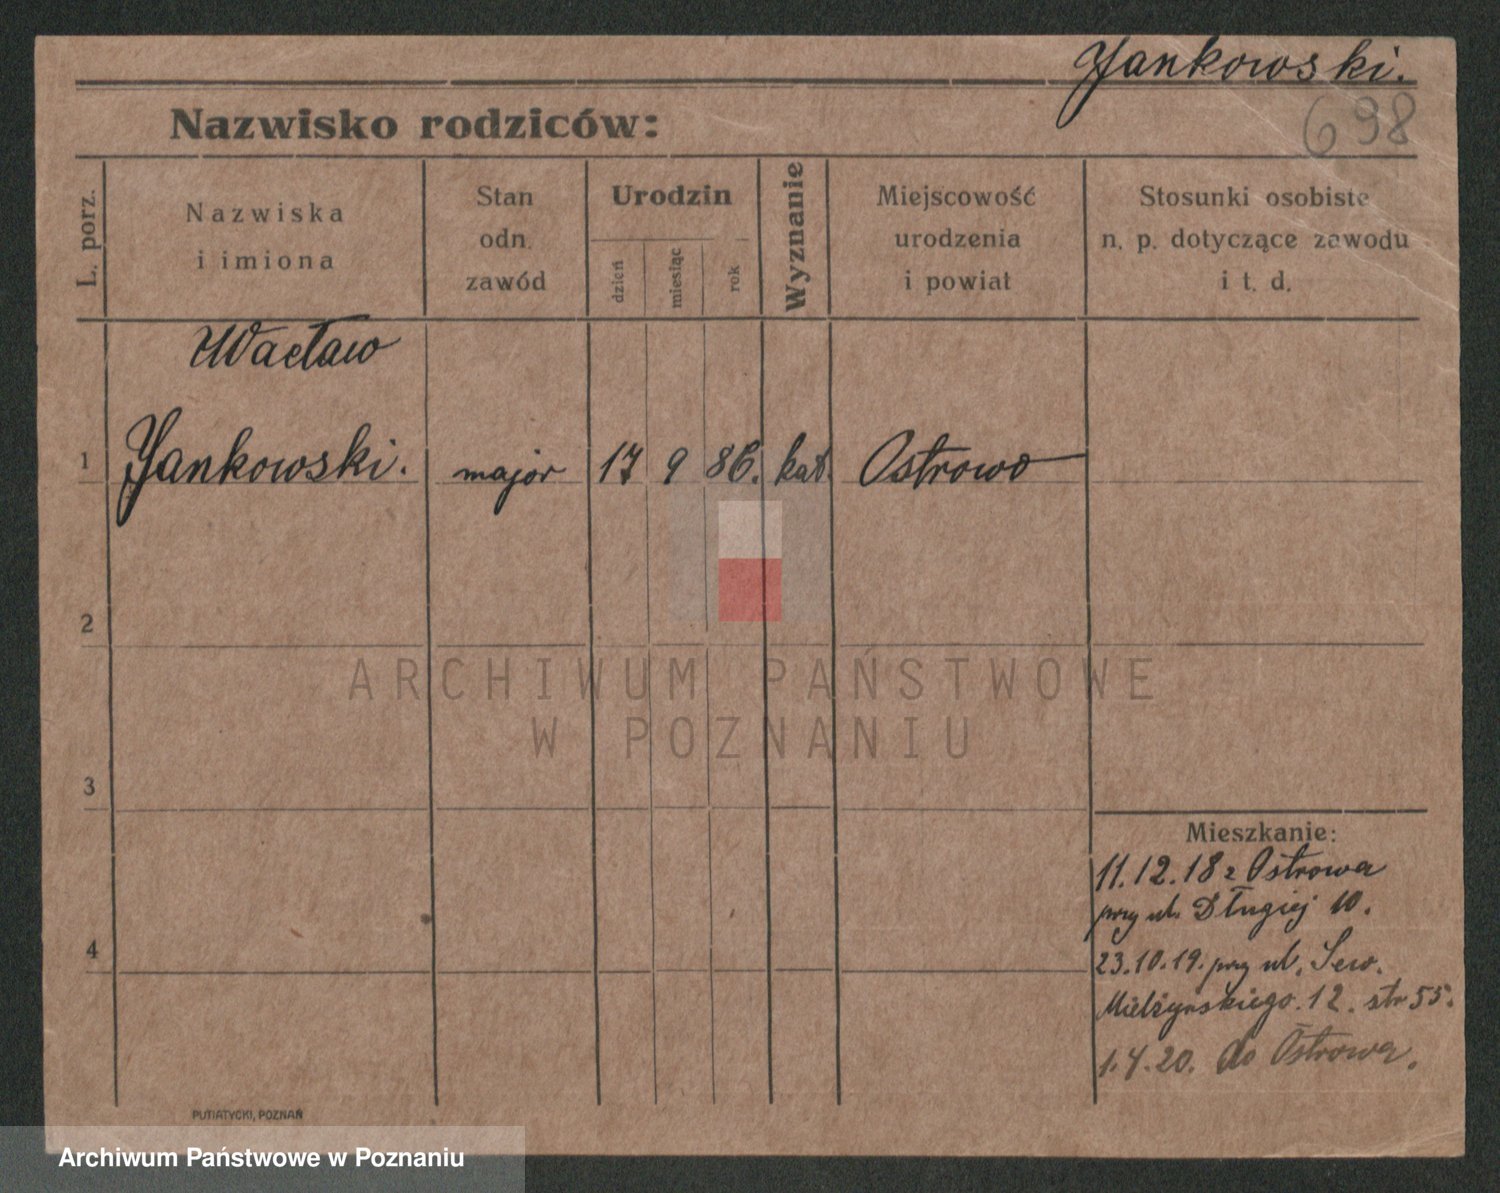 Jankowski.
698
Nazwisko rodziców:
L. porz.
Nazwiska
i imiona
Stan
odn.
zawód
Urodzin
dzień
miesiąc
rok
Wyznanie
Miejscowość
urodzenia
i powiat
Stosunki osobiste
n. p. dotyczące zawodu
i t. d.
Wacław
1 Jankowski. major 17 9 86. kat. Ostrowo
2
3
4
ARCHIWUM PAŃSTWOWE
W POZNANIU
Mieszkanie:
11.12.18 z Ostrowa
przy ul. Długiej 10.
23.10.19. przy ul. Sew.
Mielżyńskiego. 12. str 55.
1.4.20. do Ostrowa.
PUTIATYCKI, POZNAŃ
Archiwum Państwowe w Poznaniu